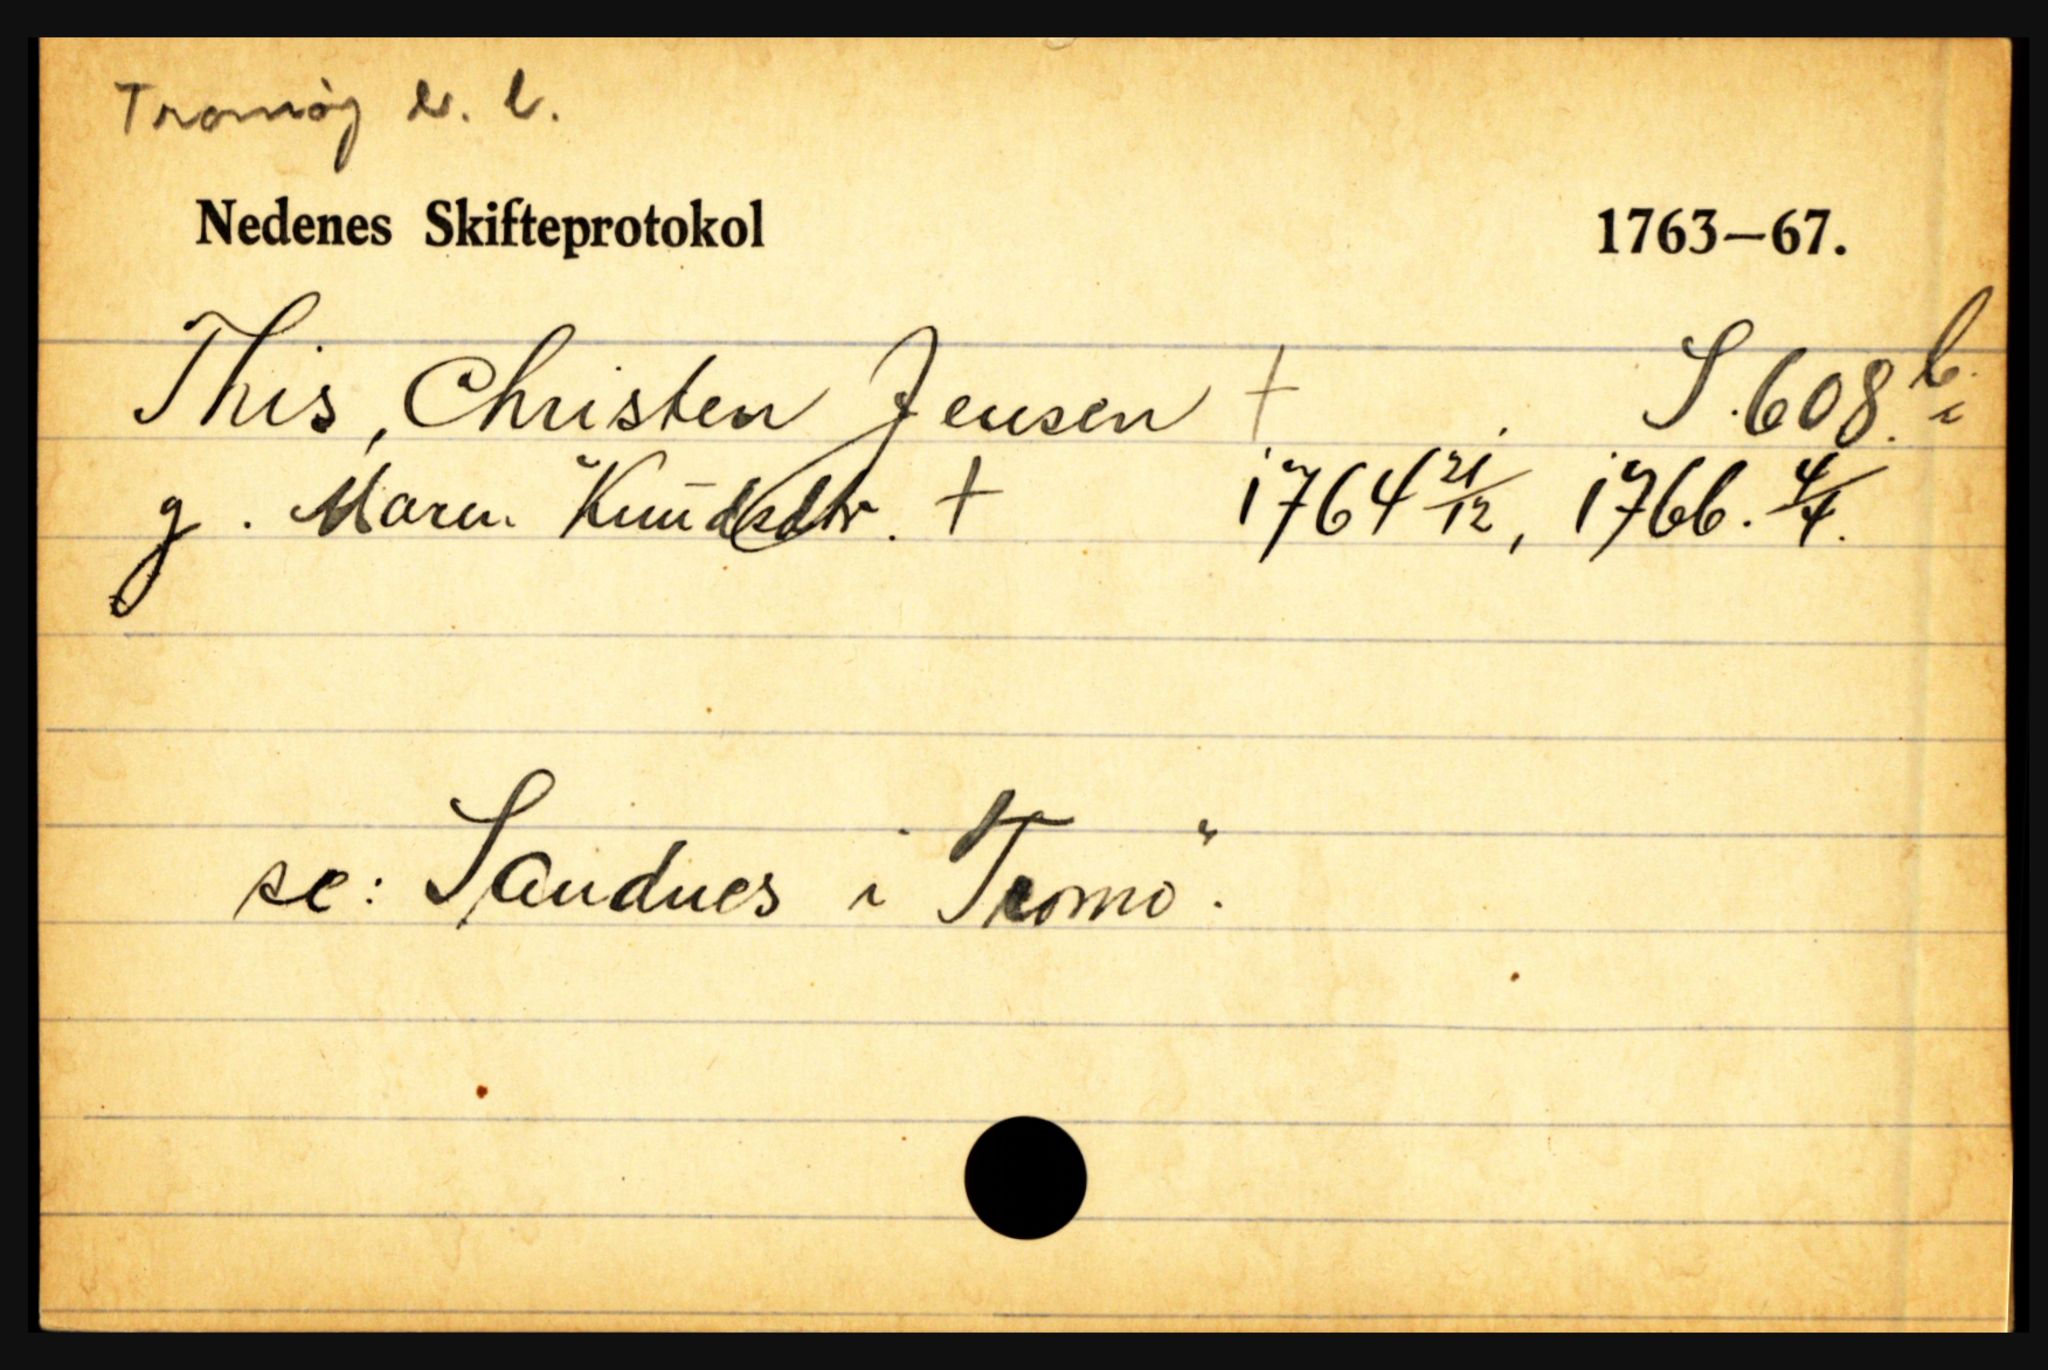 Tromøy s. l.
Nedenes Skifteprotokol 1763—67.
This, Christen Jensen † S. 608. b. i
g. Maren Knudsdtr. † 1764 21/12, 1766. 4/4.
se: Sandnes i Tromö.